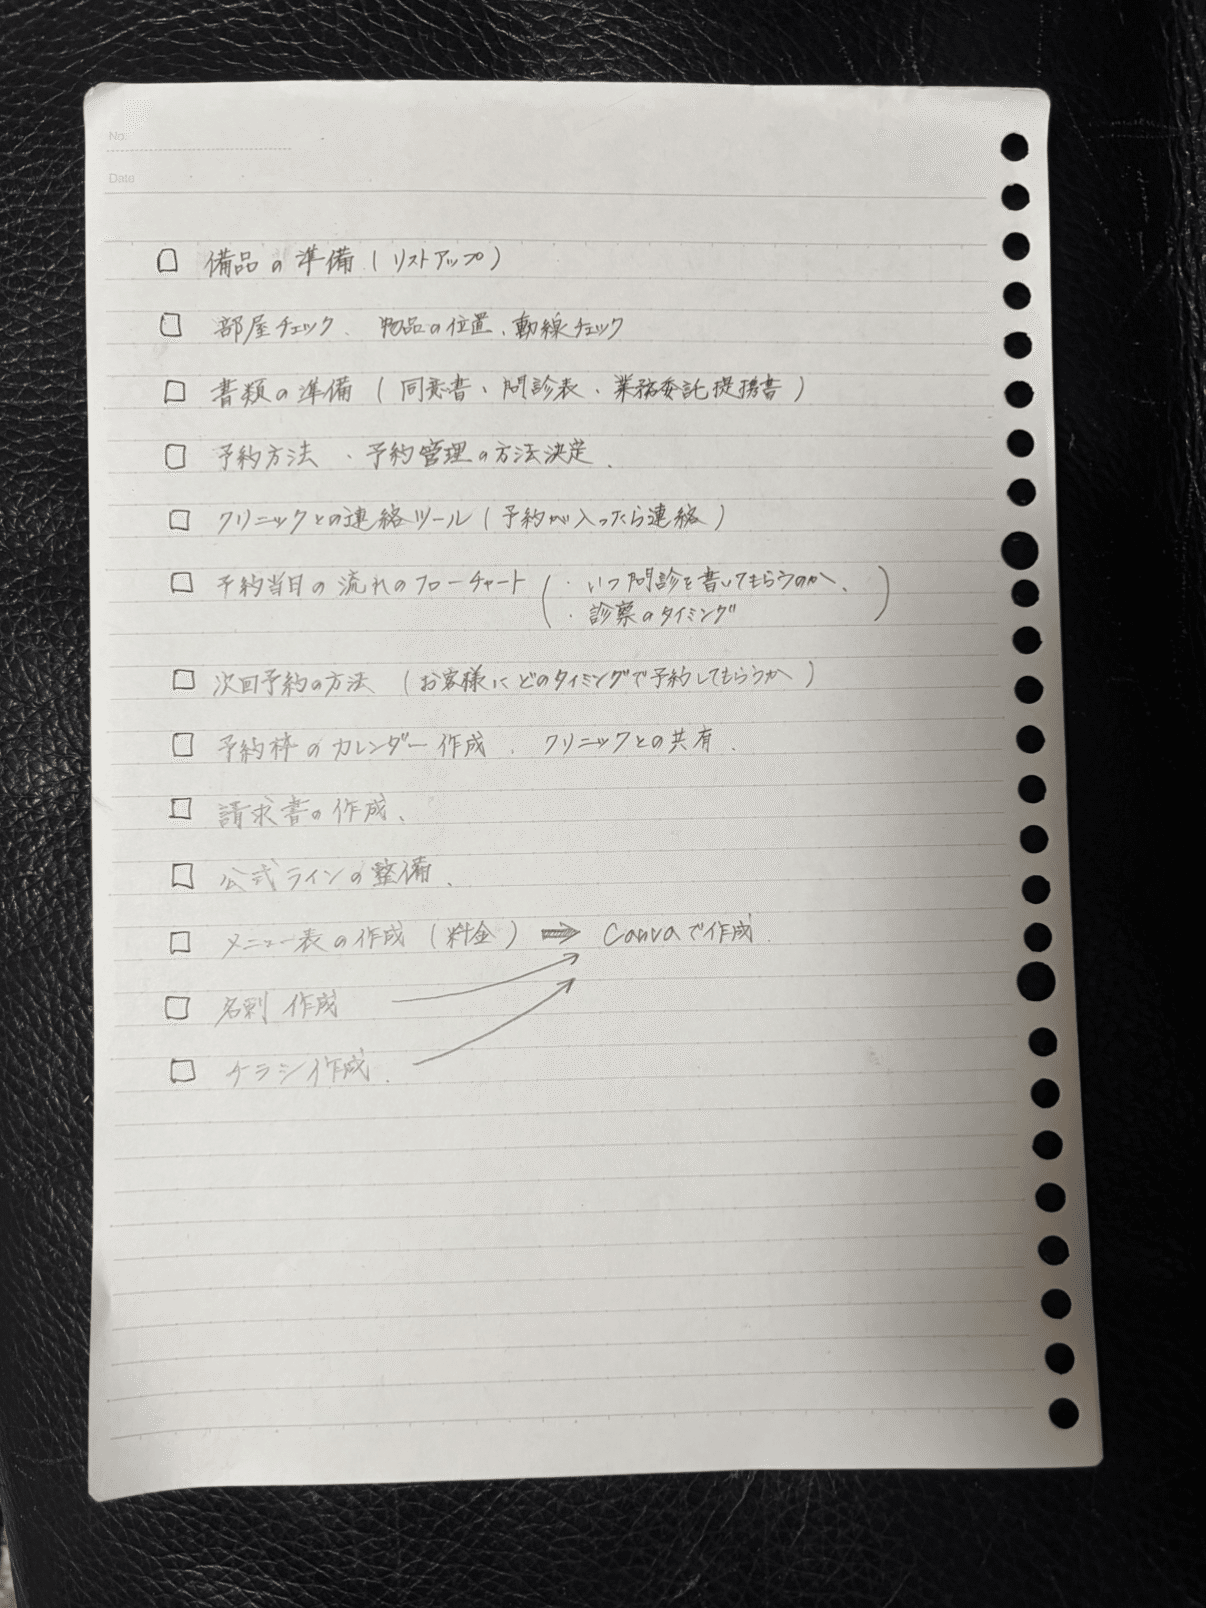 No.
Date
□ 備品の準備（リストアップ）
□ 部屋チェック、物品の位置、動線チェック
□ 書類の準備（同意書、問診表、業務委託提携書）
□ 予約方法、予約管理の方法決定.
□ クリニックとの連絡ツール（予約が入ったら連絡）
□ 予約当日の流れのフローチャート（・いつ問診を書いてもらうのか、
・診察のタイミング）
□ 次回予約の方法（お客様にどのタイミングで予約してもらうか）
□ 予約枠のカレンダー作成、クリニックとの共有.
□ 請求書の作成、
□ 公式ラインの整備.
□ メニュー表の作成（料金）⇒ Canvaで作成.
□ 名刺作成
□ チラシ作成.